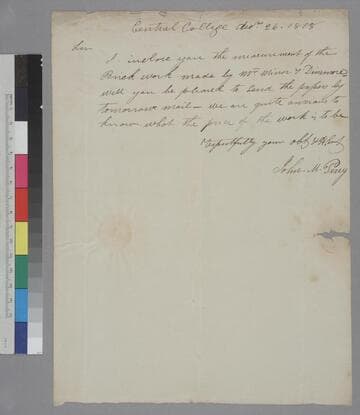 Central College Decr 26. 1818
Sir
I inclose you the measurement of the
Brick work made by Mr. Minor & Dinsmore
will you be pleased to send the papers by
tomorrows mail – we are quite anxious to
know what the price of the work is to be
Respectfully your obt. Servt
John M. Perry